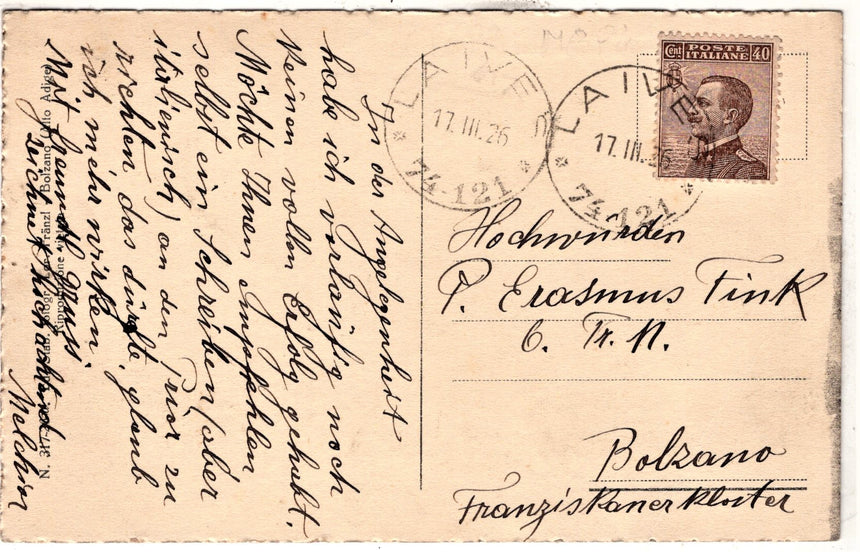 In der Angelegenheit
habe ich vorläufig noch
keinen vollen Erfolg gehabt.
Möchte Ihnen empfehlen
selbst ein Schreiben (aber
italienisch) an den zu
richten, das dürfte, glaub
ich mehr wirken.
Mit freundl. Gruss.
zeichnet hochachtend
Melchior
N. 317 Fränzl Bolzano (Alto Adige)
Riproduzione
LAIVES
17.III.26
74-121
LAIVES
17.III.26
74-121
Cent POSTE ITALIANE 40
Hochwürden
P. Erasmus Fink
O. Fr. M.
Bolzano
Franziskanerkloster